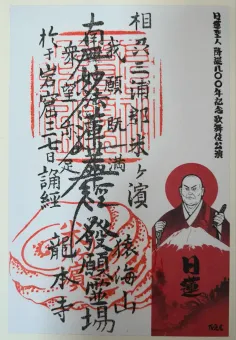 日蓮聖人降誕八〇〇年記念歌舞伎公演
日蓮
相刕三浦郡米ヶ濱
猿海山
我願既満
南無妙法蓮華経 発願霊場
衆望亦足
於于岩窟三七日誦経
龍本寺